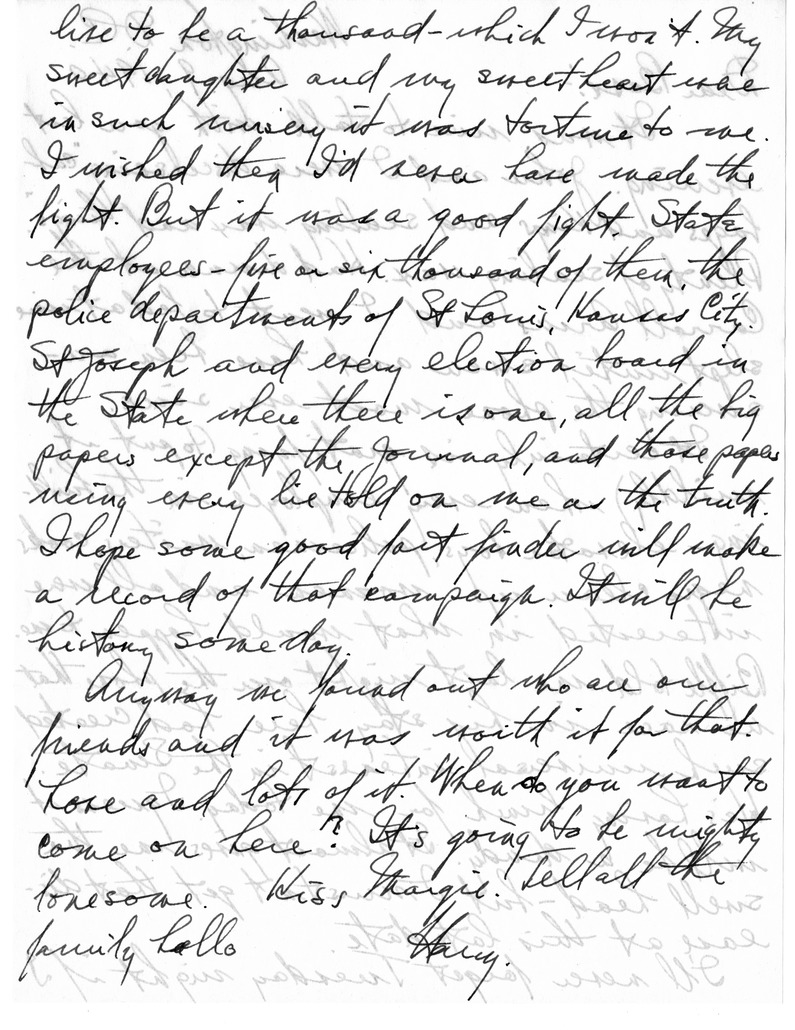 live to be a thousand-which I won't. My
sweet daughter and my sweetheart were
in such misery it was torture to me.
I wished then I'd never have made the
fight. But it was a good fight. State
employees-five or six thousand of them, the
police departments of St Louis, Kansas City,
St Joseph and every election board in
the State where there is one, all the big
papers except the Journal, and those papers
using every lie told on me as the truth.
I hope some good fact finder will make
a record of that campaign. It will be
history someday.
Anyway we found out who are our
friends and it was worth it for that.
Love and lots of it. When do you want to
come on here? It's going to be mighty
lonesome. Kiss Margie. Tell all the
family hello
Harry.